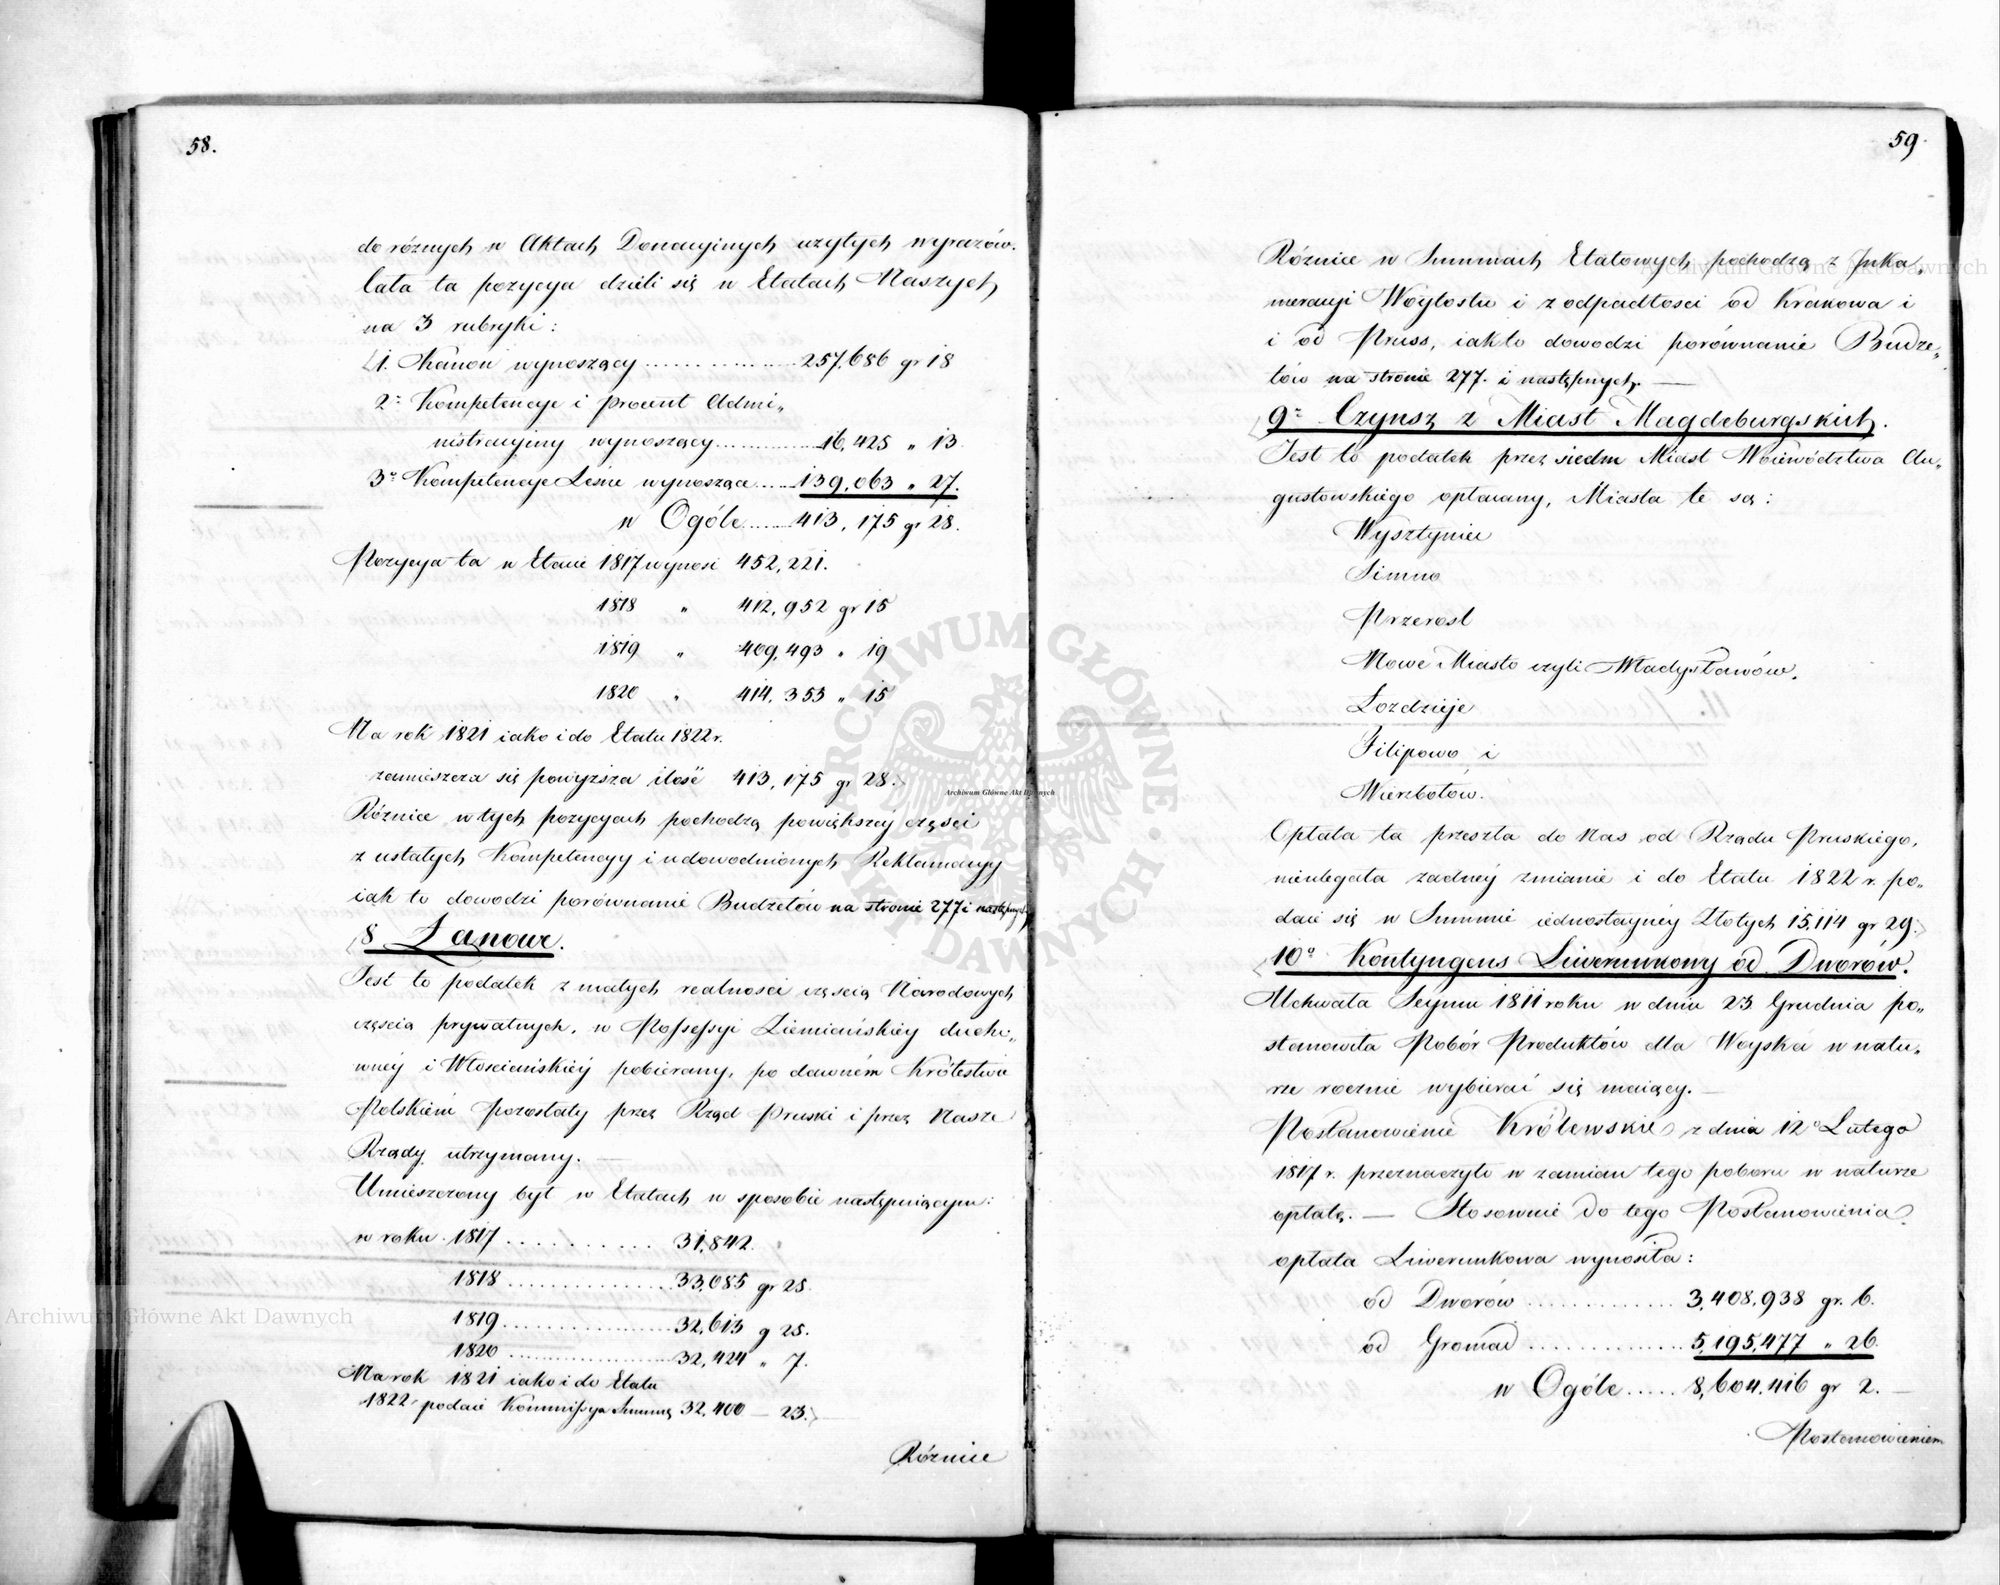 58.
do różnych w Aktach Donacyinych użytych wyrazów.
Cała ta pozycya dzieli się w Etatach Naszych
na 3 rubryki:
1. Kanon wynoszący ............ 257,686 gr 18
2º Kompetencye i procent Admi„
nistracyiny wynoszący ............ 16,425 „ 13.
3º Kompetencye Leśne wynoszące ..... 139,063 „ 27.
w Ogóle ..... 413,175 gr 28.
Pozycya ta w Etacie 1817 wynosi 452,221.
1818 „ 412,952 gr 15
1819 „ 409,493 „ 19
1820 „ 414,353 „ 15
Na rok 1821 iako i do Etatu 1822 r.
zamieszcza się powyższa ilość 413,175 gr 28.
Różnice w tych pozycyach pochodzą powiększey części
z ustałych Kompetencyy i udowodnionych Reklamacyy
iak to dowodzi porównanie Budżetów na stronie 277 i następnych
8 Łanowe.
Jest to podatek z małych realności częścią Narodowych
częścią prywatnych, w Possessyi Ziemiańskiéy ducho„
wnéy i Włościańskiéy pobierany, po dawném Królestwie
Polskiém pozostały przez Rząd Pruski i przez Nasze
Rządy utrzymany. —
Umieszczony był w Etatach w sposobie następuiącym:
w roku 1817 ............ 31,842.
1818 ............ 33,085 gr 25.
1819 ............ 32,613 g 25.
1820 ............ 32,424 „ 7.
Na rok 1821 iako i do Etatu
1822 podaie Kommissya Summę 32,400 — 23.
Różnice
59.
Różnice w Summach Etatowych pochodzą z Inka„
meracyi Woytostw i z odpadłości od Krakowa i
i od Pruss, iak to dowodzi porównanie Budże„
tów na stronie 277. i następnych. —
9º Czynsz z Miast Magdeburgskich.
Jest to podatek przez siedm Miast Woiewództwa Au„
gustowskiego opłacany, Miasta te są:
Wysztyniec
Simno
Przerosl
Nowe Miasto czyli Władysławów.
Łozdzieje
Filipowo i
Wierzbołów.
Opłata ta przeszła do Nas od Rządu Pruskiego,
nieulegała żadnéy zmianie i do Etatu 1822 r. po„
daie się w Summie iednostaynéy Złotych 15,114 gr 29.
10º Kontyngens Liwerunkowy od Dworów.
Uchwała Seymu 1811 roku w dniu 23 Grudnia po„
stanowiła Pobór Produktów dla Woyska w natu„
rze rocznie wybierać się maiący. —
Postanowienie Królewskie z dnia 12º Lutego
1817 r. przeznaczyło w zamian tego poboru w naturze
opłatę. — Stosownie do tego Postanowienia
opłata Liwerunkowa wynosiła:
od Dworów ............ 3,408,938 gr. 6.
od Gromad ............ 5,195,477 „ 26.
w Ogóle ..... 8,604,416 gr 2. —
Postanowieniem
Archiwum Główne Akt Dawnych
Archiwum Główne Akt Dawnych
Archiwum Główne Akt Dawnych
ARCHIWUM GŁÓWNE AKT DAWNYCH